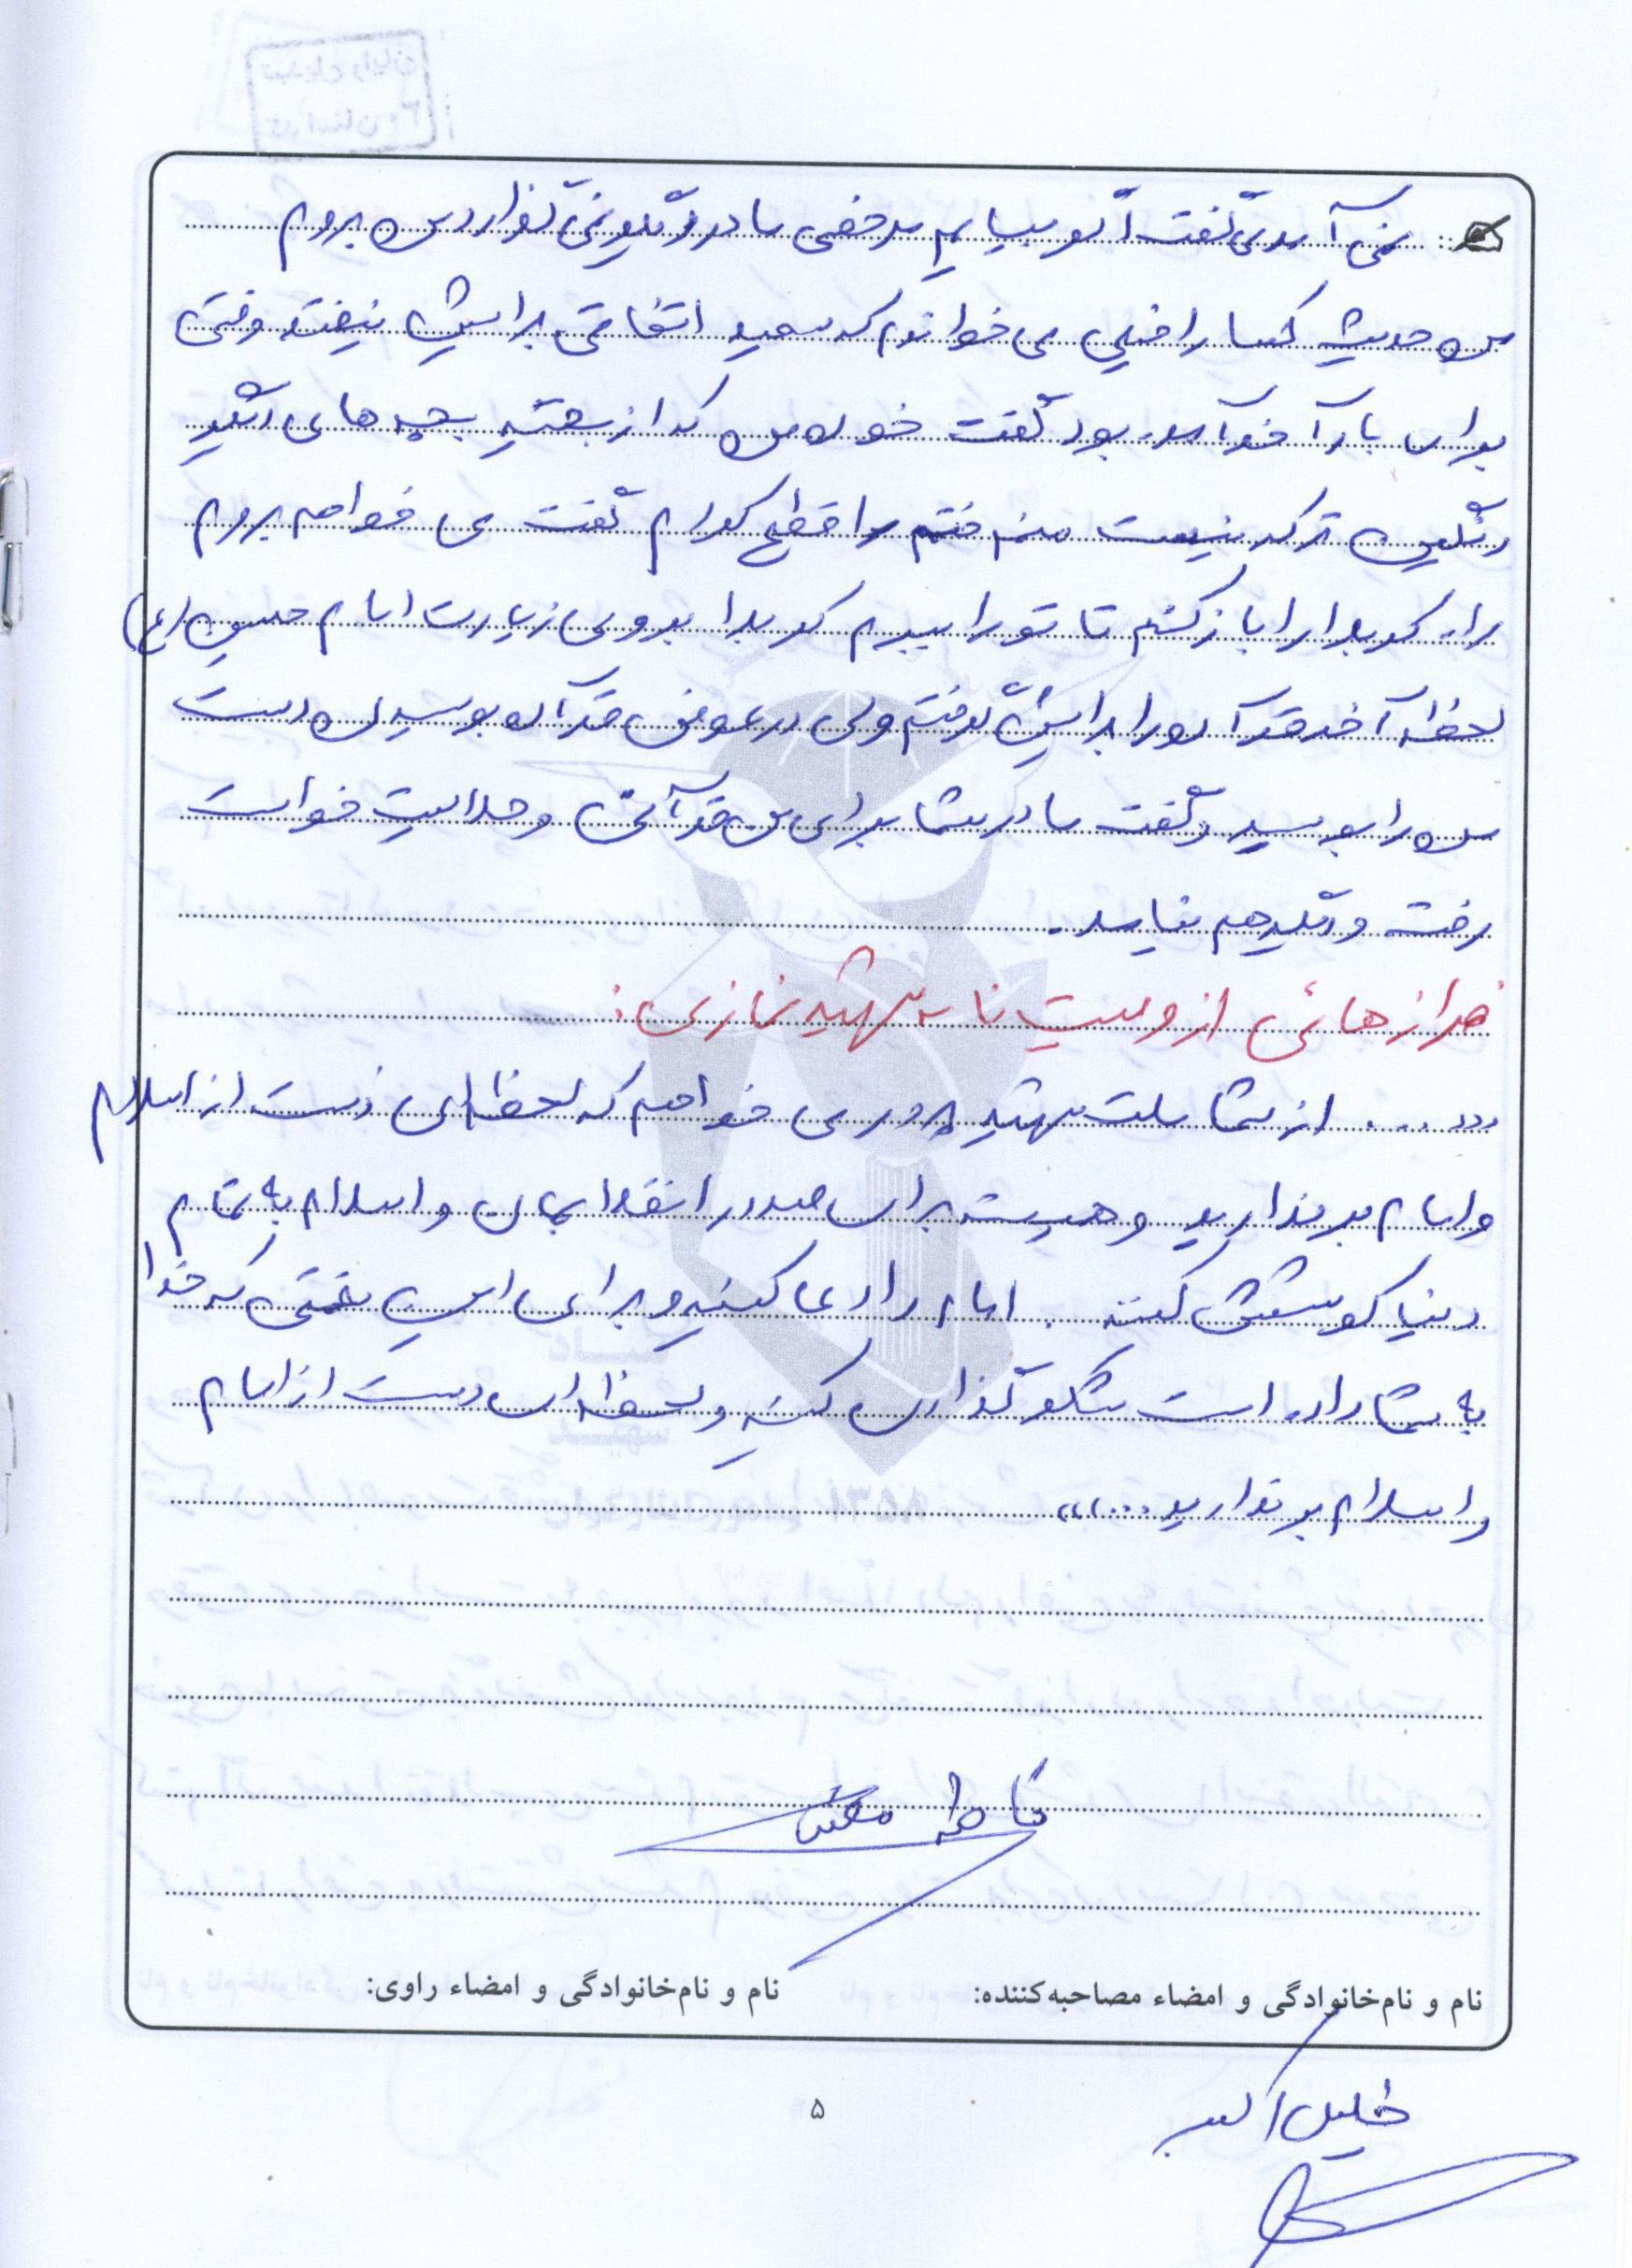 نمی آمد می گفت اگر بیایم مرخصی مادر دیگر نمی گذارد من بروم
من حدیث کسا را خیلی می خواندم که سعید اتفاقی برایش نیفتد وقتی
برای بار آخر آمده بود گفت خون من که از بقیه بچه های دیگر
رنگین تر که نیست منم ختم را قطع کردم گفت می خواهم بروم
راه کربلا را باز کنم تا تو را ببرم کربلا بروی زیارت امام حسین (ع)
لحظه آخر قرآن را برایش گرفتم ولی در عوض قرآن بوسیدن دست
من را بوسید و گفت مادر شما برای من قرآنی و حلالیت خواست
رفت و دیگر هم نیامد.
فرازهائی از وصیت نامه شهید نمازی:
((.... از شما ملت شهید پرور می خواهم که لحظه ای دست از اسلام
و امام برندارید و همیشه برای صدور انقلابمان و اسلام به تمام
دنیا کوشش کنید. امام را دعا کنید و برای این نعمتی که خدا
به شما داده است شکرگذاری کنید و لحظه ای دست از امام
و اسلام برندارید....))
فاطمه
نام و نام‌خانوادگی و امضاء مصاحبه‌کننده: نام و نام‌خانوادگی و امضاء راوی:
خلیل اکبر
۵